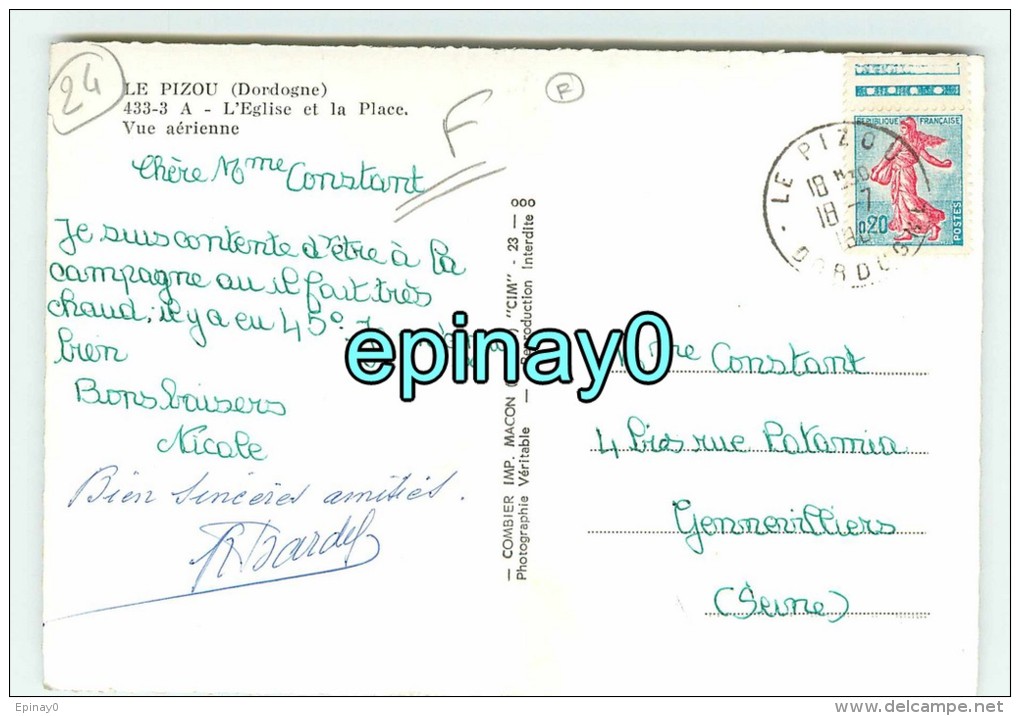 24
LE PIZOU (Dordogne)
433-3 A - L'Eglise et la Place.
Vue aérienne
F
R
Chère Mme Constant
Je suis contente d'être à la
campagne ou il fait très
chaud, il y a eu 45°.
bien
Bons baisers
Nicole
Bien sincères amitiés.
R Bardel
— COMBIER IMP. MACON "CIM" - 23 — ooo
Photographie Véritable — Reproduction Interdite
REPUBLIQUE FRANÇAISE
0,20
POSTES
LE PIZOU
18 H30
18 -7
DORDOGNE
Constant
4 bis rue
Gennevilliers
(Seine)
epinay0
Epinay0
www.delcampe.net